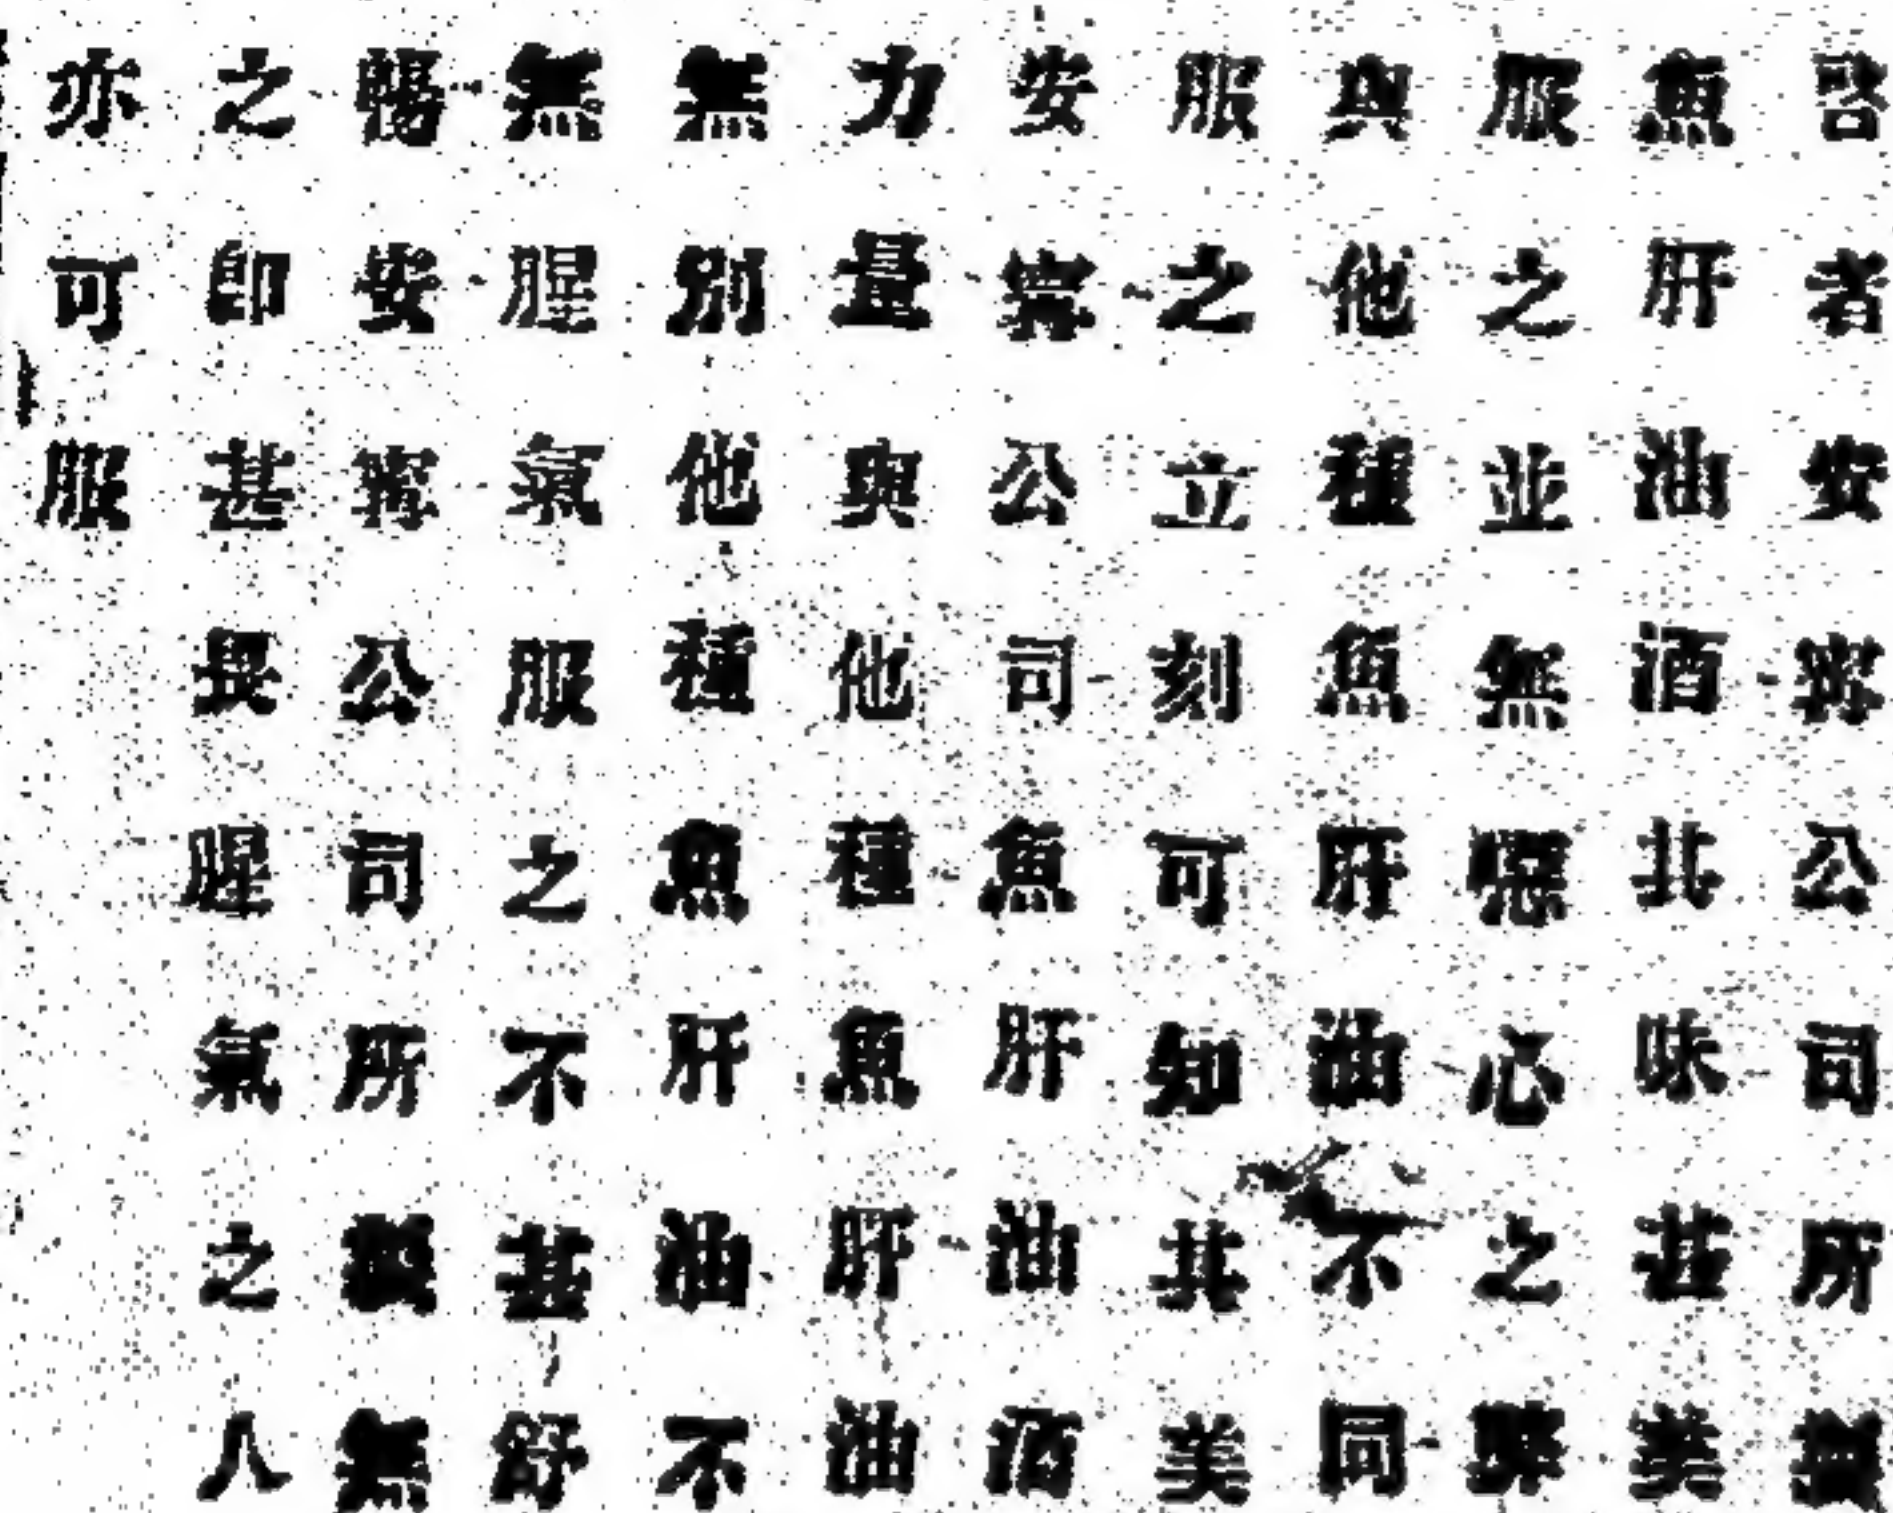 啓者安寗公司所製
魚肝油酒其味甚美
服之並無噁心之弊
與他種魚肝油不同
服之立刻可知其美
安寗公司魚肝油酒
力量與他種魚肝油
無別他種魚肝油不
無腥氣服之不甚舒
暢安寗公司所製無
之卽甚畏腥氣之人
亦可服